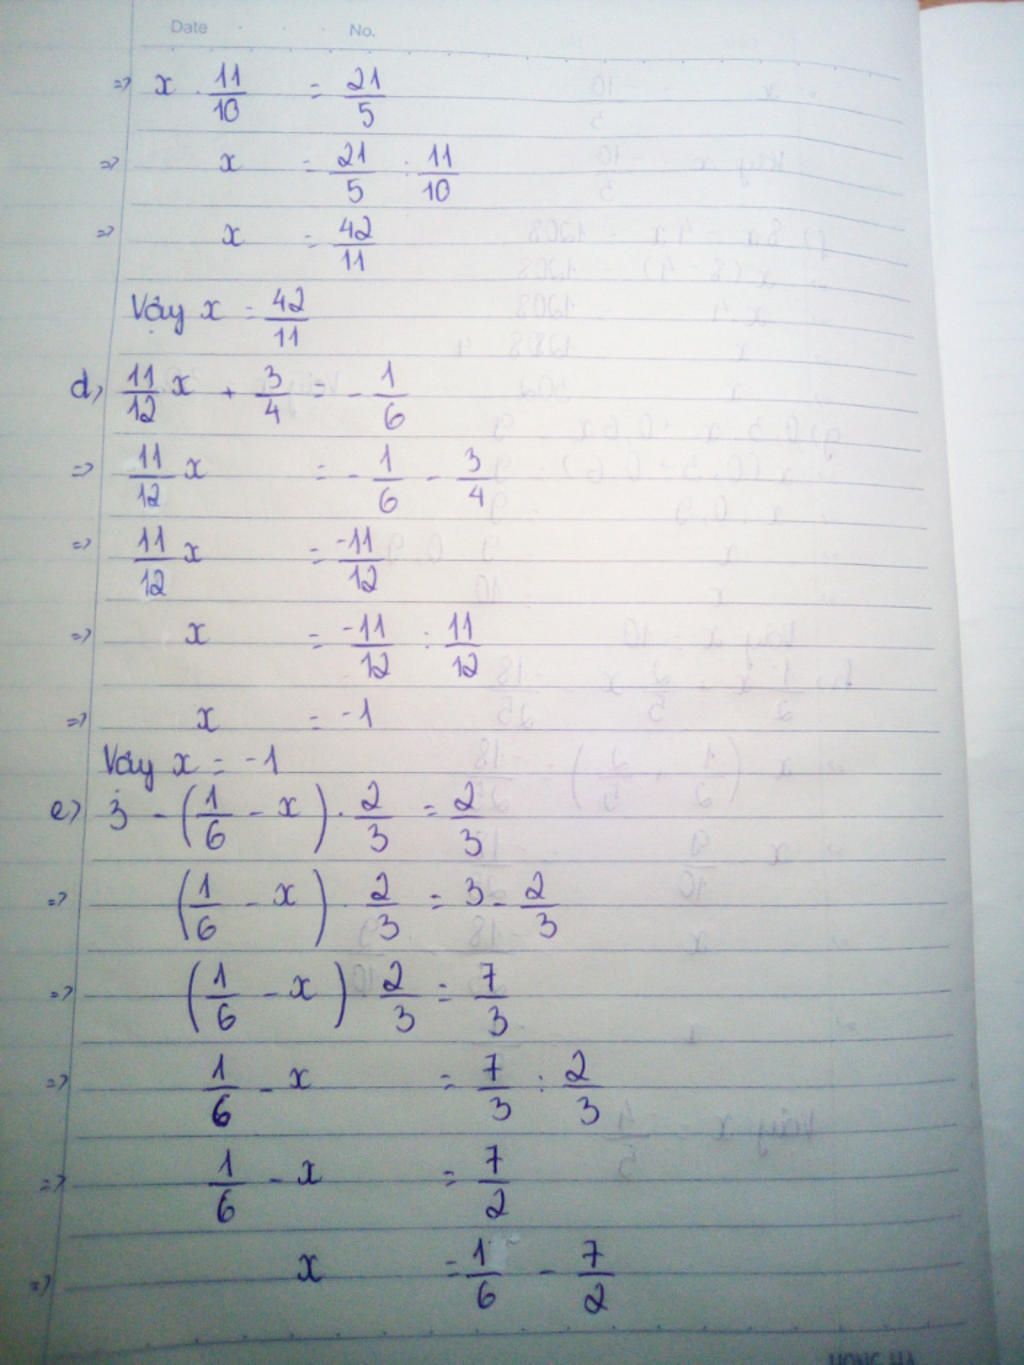 Date No.
=> x . 11/10 = 21/5
=> x = 21/5 : 11/10
=> x = 42/11
Vậy x = 42/11
d, 11/12 x + 3/4 = - 1/6
=> 11/12 x = - 1/6 - 3/4
=> 11/12 x = -11/12
=> x = -11/12 : 11/12
=> x = -1
Vậy x = -1
e) 3 - (1/6 - x) . 2/3 = 2/3
=> (1/6 - x) . 2/3 = 3 - 2/3
=> (1/6 - x) 2/3 = 7/3
=> 1/6 - x = 7/3 : 2/3
=> 1/6 - x = 7/2
=> x = 1/6 - 7/2